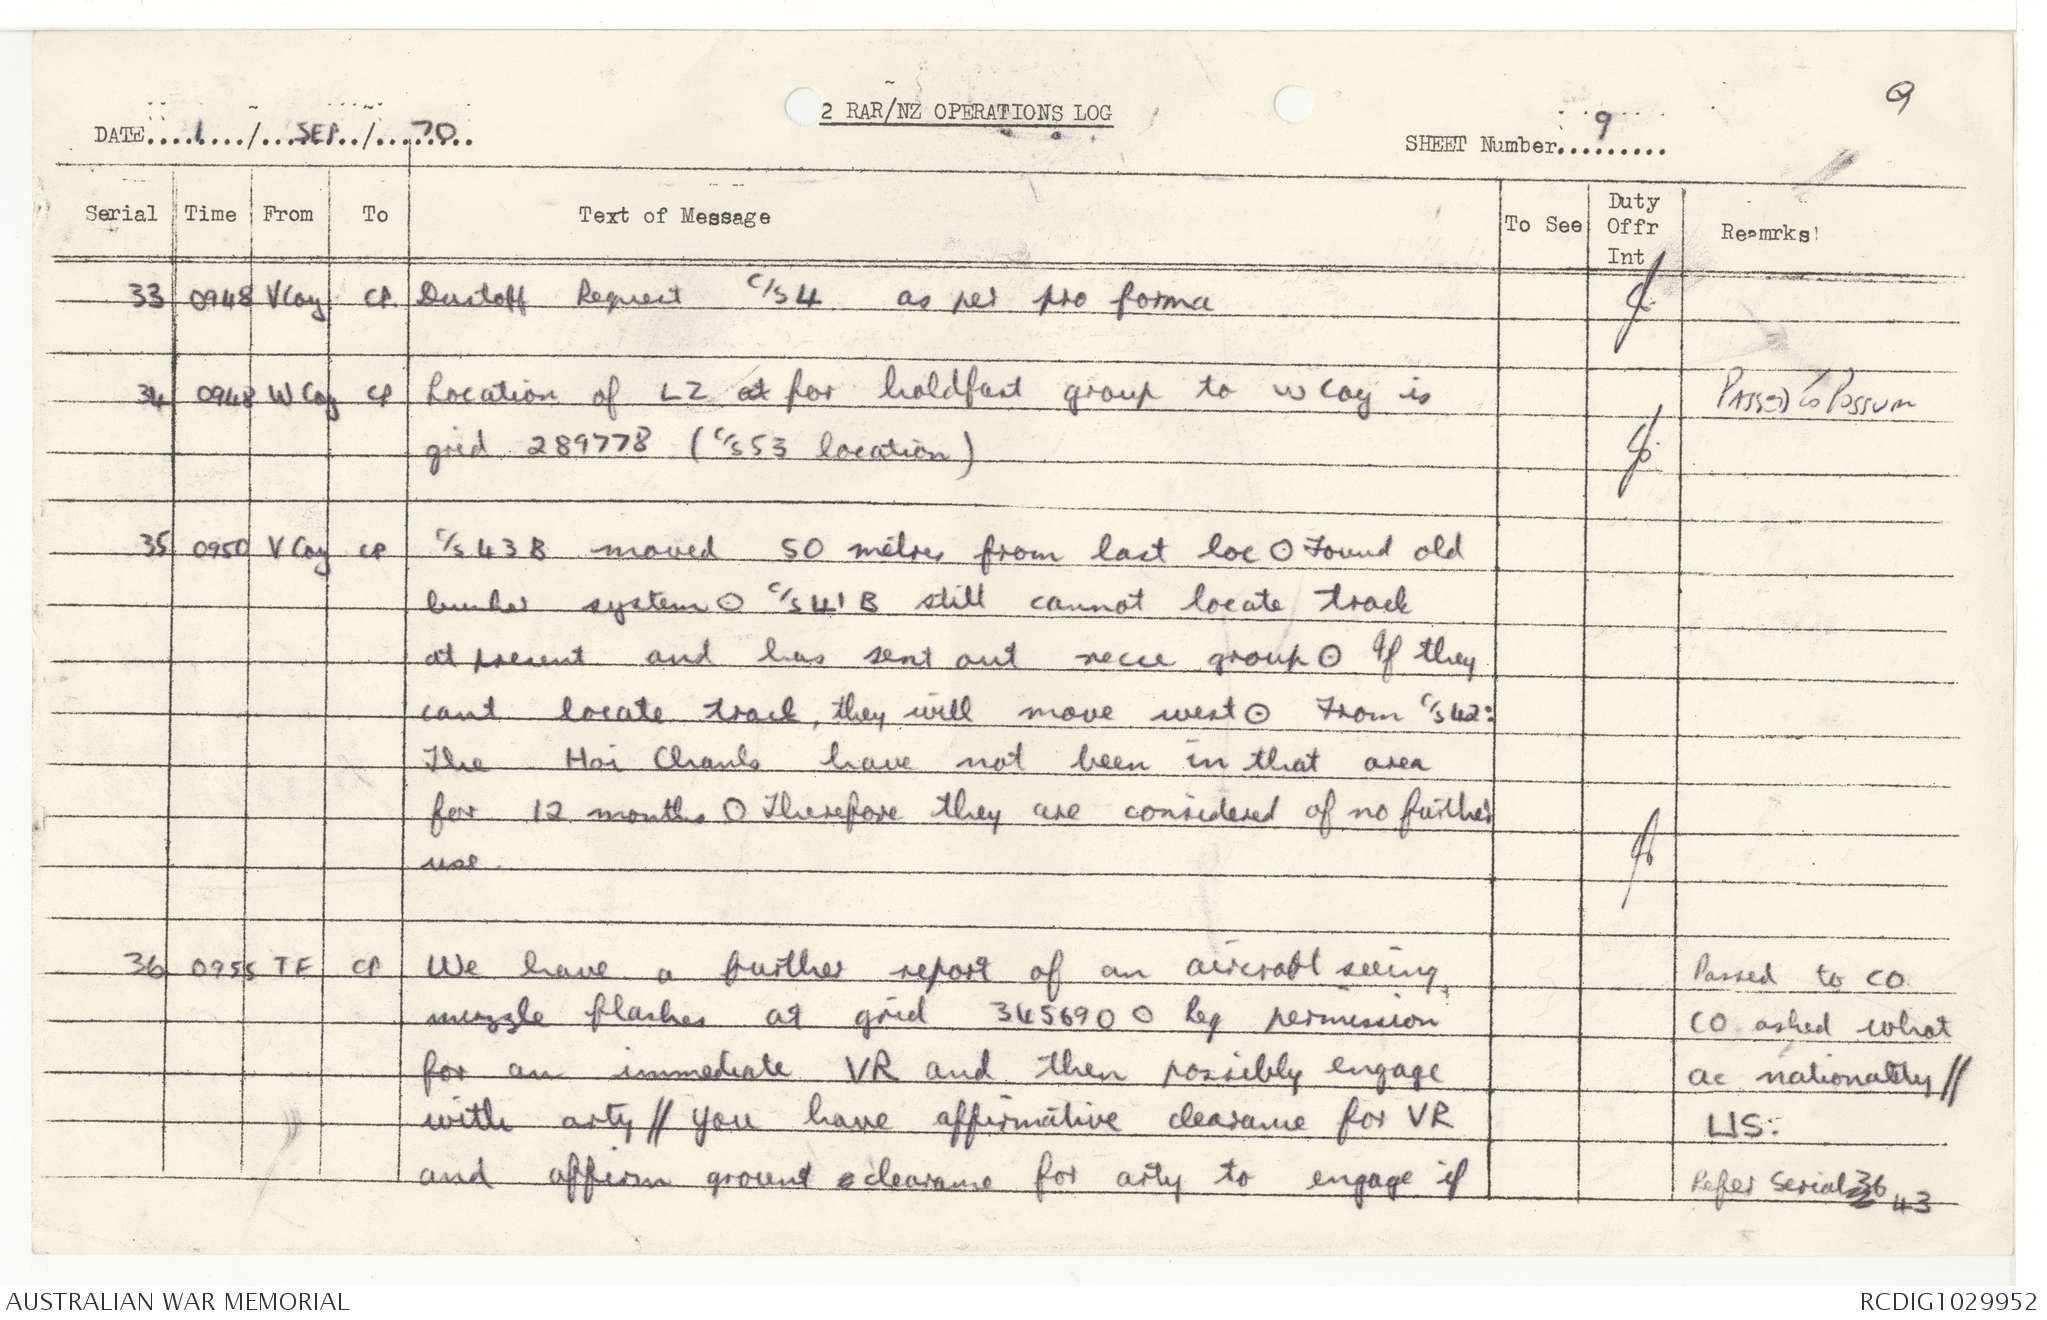 9
2 RAR/NZ OPERATIONS LOG
DATE....1..../...SEP../....70..
SHEET Number....9.....
Serial Time From To Text of Message To See Duty Offr Int Reamrks!
33 0948 V Coy CP. Dustoff Request C/S 4 as per pro forma
34 0948 W Coy CP Location of LZ at for holdfast group to W Coy is Passed to Possum
grid 289778 (C/S 53 location)
35 0950 V Coy CP C/S 43B moved 50 metres from last loc ⊙ Found old
bunker system ⊙ C/S 41B still cannot locate track
at present and has sent out recce group ⊙ If they
cant locate track, they will move west ⊙ From C/S 42:
The Hoi Chanhs have not been in that area
for 12 months ⊙ Therefore they are considered of no further
use.
36 0955 TF CP We have a further report of an aircraft seeing Passed to CO.
muzzle flashes at grid 345690 ⊙ Req permission CO asked what
for an immediate VR and then possibly engage ac nationality //
with arty // You have affirmative clearance for VR US:
and affirm ground clearance for arty to engage if Refer Serial 36 43
AUSTRALIAN WAR MEMORIAL
RCDIG1029952